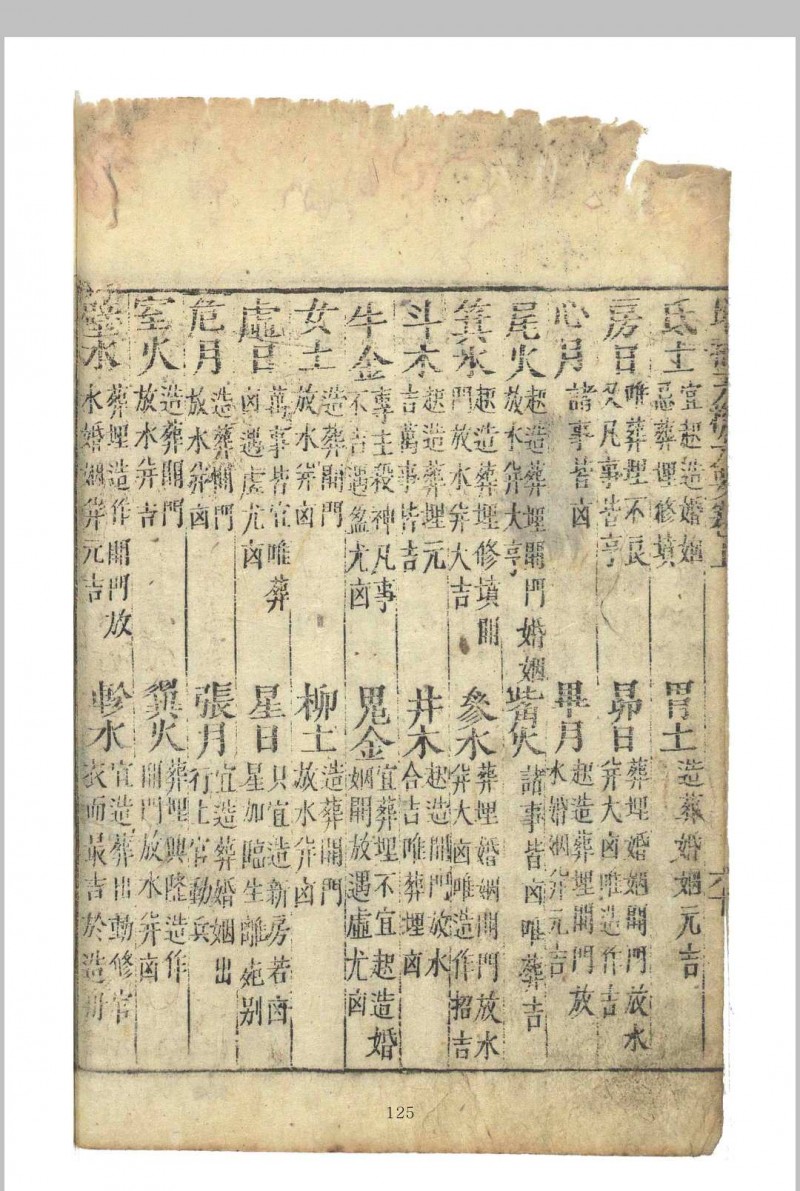 氐土
宜起造婚姻
忌葬埋修墳
房日
唯葬埋不良
又凡事皆亨
心月
諸事皆凶
尾火
起造葬埋開門婚姻
放水并大亨
箕水
起造葬埋修墳開
門放水并大吉
斗木
起造葬埋元
吉萬事皆吉
牛金
專主殺神凡事
不吉遇盈尤凶
女土
造葬開門
放水并凶
虛日
萬事皆宜唯葬
凶遇虛尤凶
危月
造葬開門
放水并凶
室火
造葬開門
放水并吉
壁水
葬埋造作開門放
水婚姻并元吉
六十
胃土
造葬婚姻元吉
昴日
葬埋婚姻開門放水
并大凶唯造作吉
畢月
起造葬埋開門放
水婚姻并元吉
觜火
諸事皆凶唯葬吉
參水
葬埋婚姻開門放水
并大凶唯造作招吉
井木
起造開門放水
合吉唯葬埋凶
鬼金
宜葬埋不宜起造婚
姻開放遇虛尤凶
柳土
造葬開門
放水并凶
星日
只宜造新房若凶
星加臨生離死别
張月
宜造葬婚姻出
行上官動兵
翼火
葬埋興隆造作
開門放水并凶
軫水
宜造葬出動修官
衣而最吉於造
125